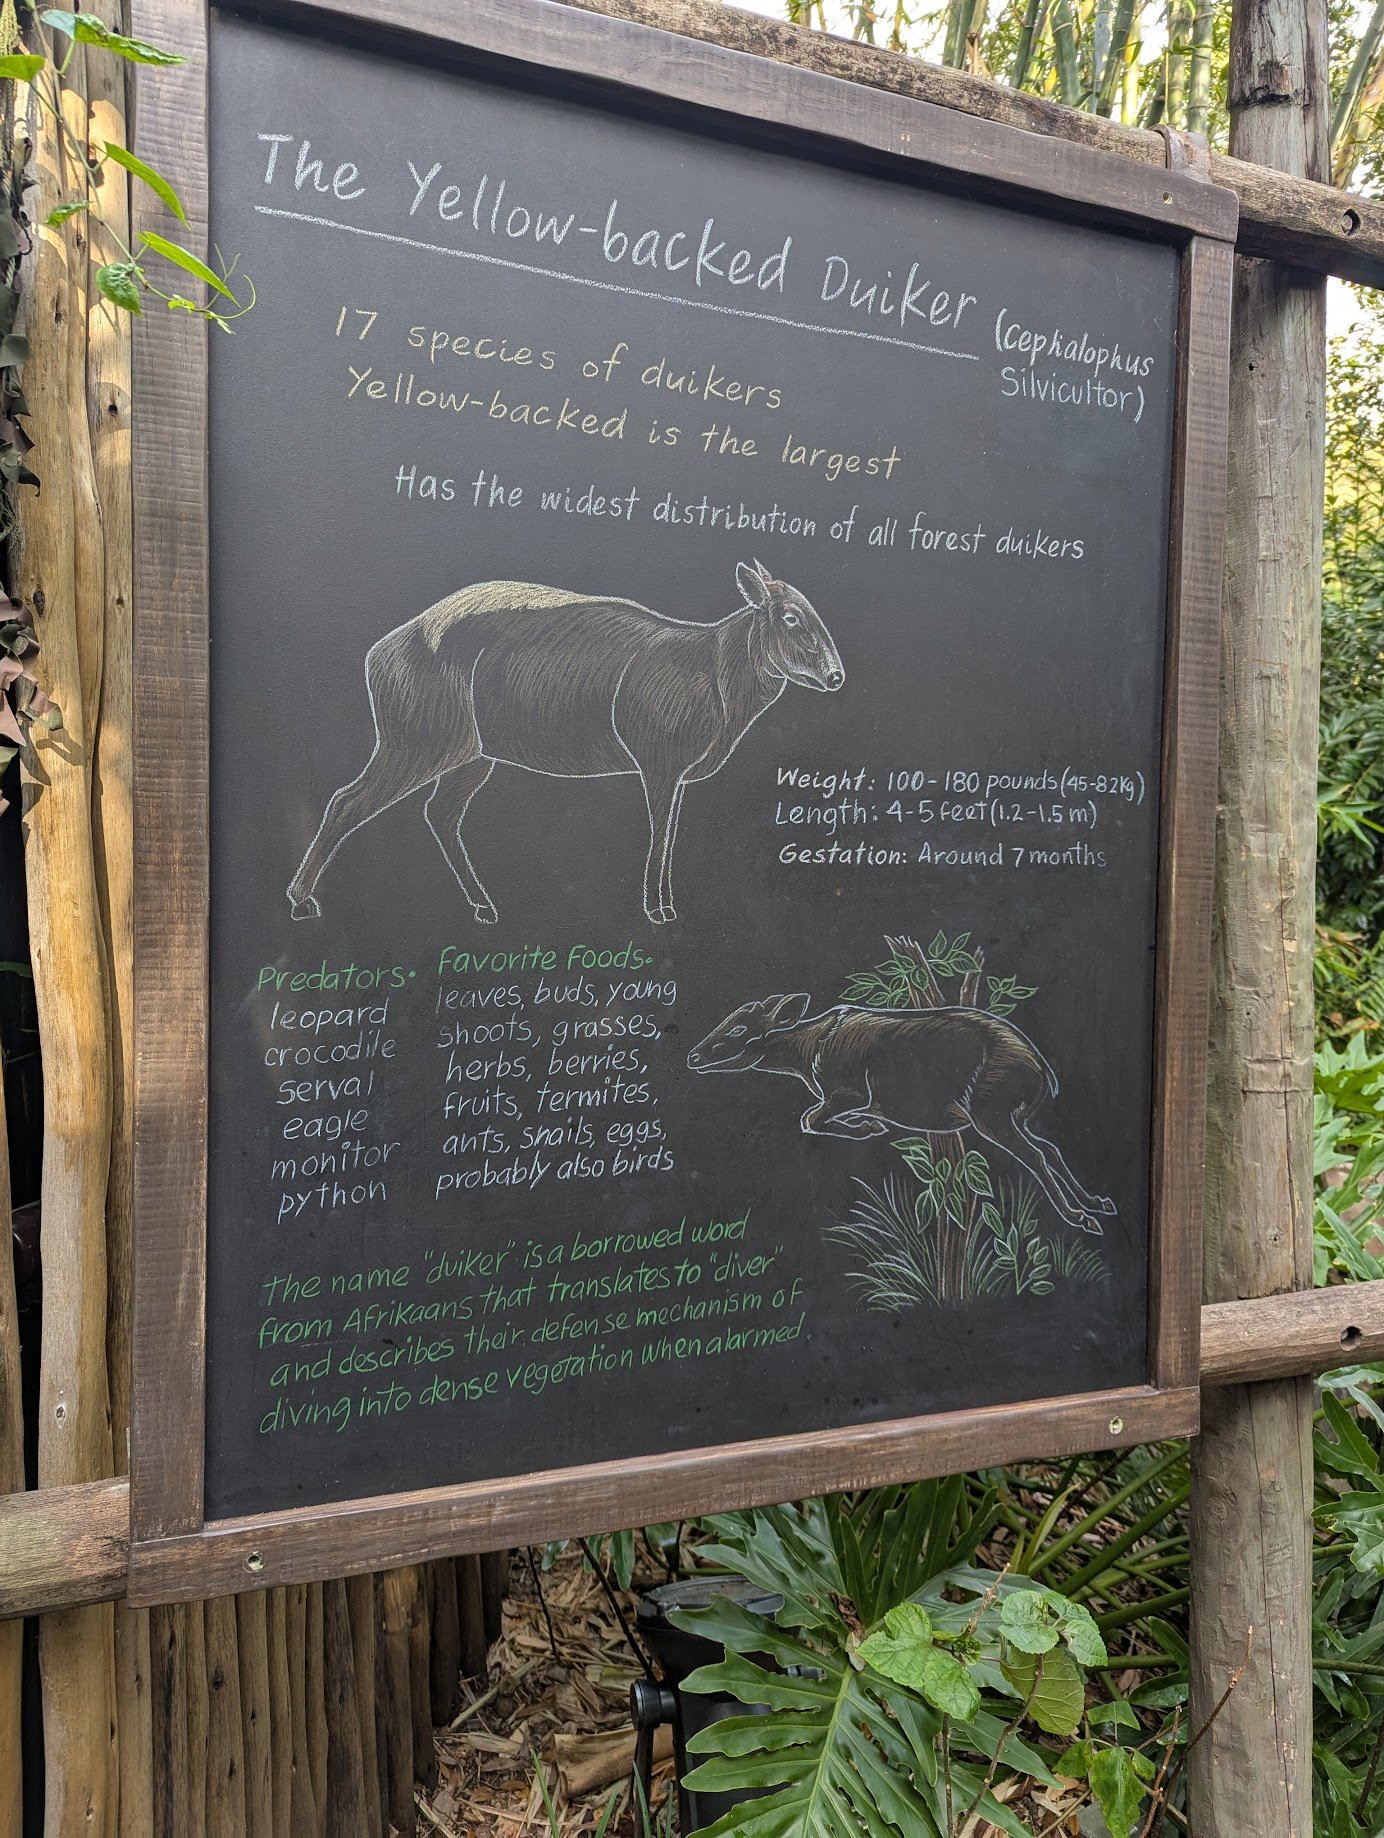 The Yellow-backed Duiker (Cephalophus
Silvicultor)
17 species of duikers
Yellow-backed is the largest
Has the widest distribution of all forest duikers
Weight: 100-180 pounds (45-82kg)
Length: 4-5 feet (1.2-1.5 m)
Gestation: Around 7 months
Predators.
leopard
crocodile
serval
eagle
monitor
python
Favorite Foods.
leaves, buds, young
shoots, grasses,
herbs, berries,
fruits, termites,
ants, snails, eggs,
probably also birds
The name "duiker" is a borrowed word
from Afrikaans that translates to "diver"
and describes their defense mechanism of
diving into dense vegetation when alarmed.